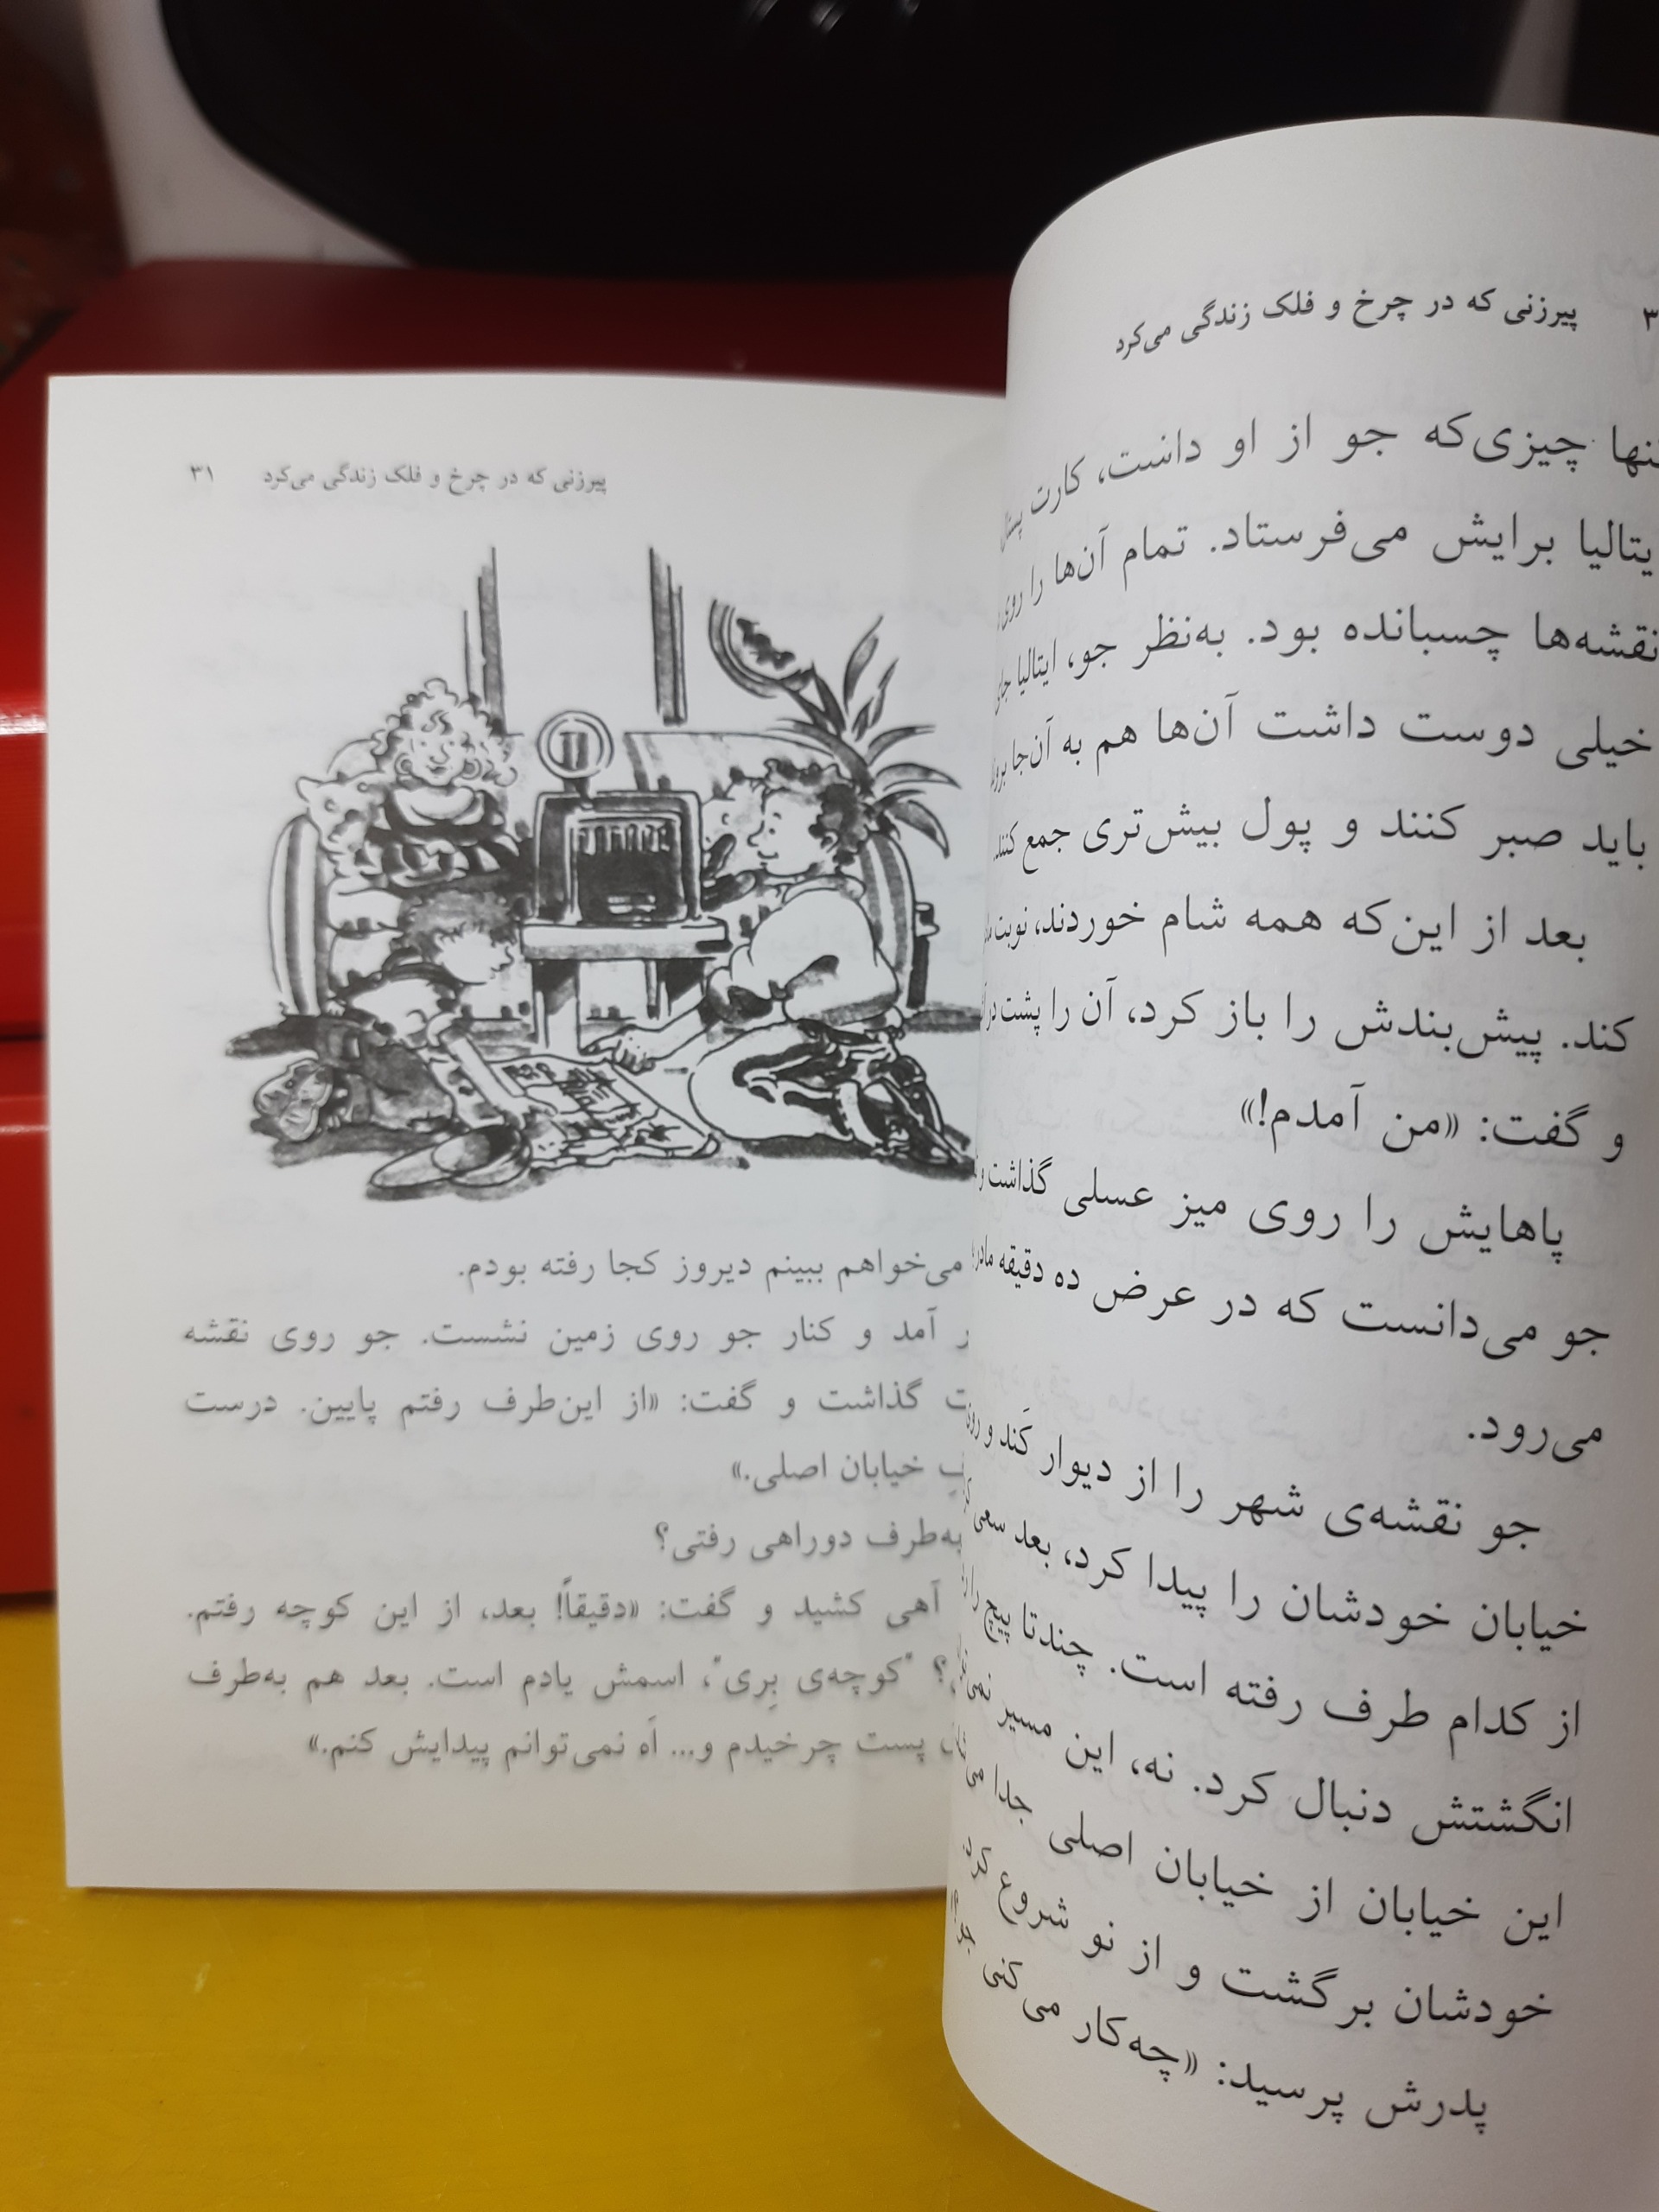 پیرزنی که در چرخ و فلک زندگی می‌کرد
چیزی‌که جو از او داشت، کارت
برایش می‌فرستاد. تمام آن‌ها را روی
نقشه‌ها چسبانده بود. به‌نظر جو، ایتالیا
خیلی دوست داشت آن‌ها هم به آن‌جا
باید صبر کنند و پول بیش‌تری جمع کنند.
بعد از این‌که همه شام خوردند، نوبت
کند. پیش‌بندش را باز کرد، آن را پشت در
و گفت: «من آمدم!»
پاهایش را روی میز عسلی گذاشت و
جو می‌دانست که در عرض ده دقیقه
می‌رود.
جو نقشه‌ی شهر را از دیوار کَند و
خیابان خودشان را پیدا کرد، بعد سعی
از کدام طرف رفته است. چندتا پیچ را
انگشتش دنبال کرد. نه، این مسیر
این خیابان از خیابان اصلی جدا
خودشان برگشت و از نو شروع کرد.
پدرش پرسید: «چه‌کار می‌کنی
پیرزنی که در چرخ و فلک زندگی می‌کرد ۳۱
می‌خواهم ببینم دیروز کجا رفته بودم.
آمد و کنار جو روی زمین نشست. جو روی نقشه
گذاشت و گفت: «از این‌طرف رفتم پایین. درست
خیابان اصلی.»
به‌طرف دوراهی رفتی؟
آهی کشید و گفت: «دقیقاً! بعد، از این کوچه رفتم.
؟ "کوچه‌ی بِری"، اسمش یادم است. بعد هم به‌طرف
پست چرخیدم و... اَه نمی‌توانم پیدایش کنم.»